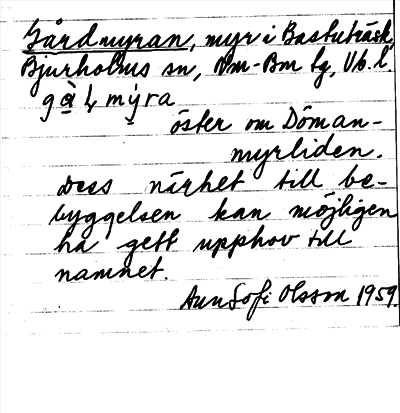 Gårdmyran, myr i Bastuträsk
Bjurholms sn, Nm-Bm tg, Vb. l.
gạ̀ḷ mýra
öster om Döman-
myrliden.
Dess närhet till be-
byggelsen kan möjligen
ha gett upphov till
namnet.
Ann Sofi Olsson 1959.